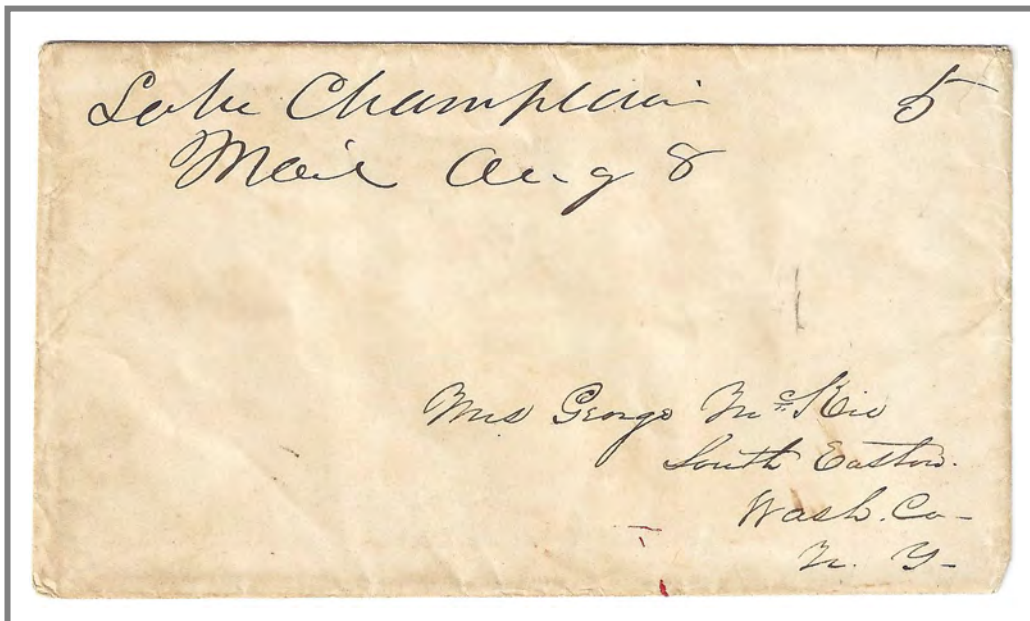 Lake Champlain 5
Mail Aug 8
Mrs George McKie
South Easton.
Wash. Co-
N. Y-